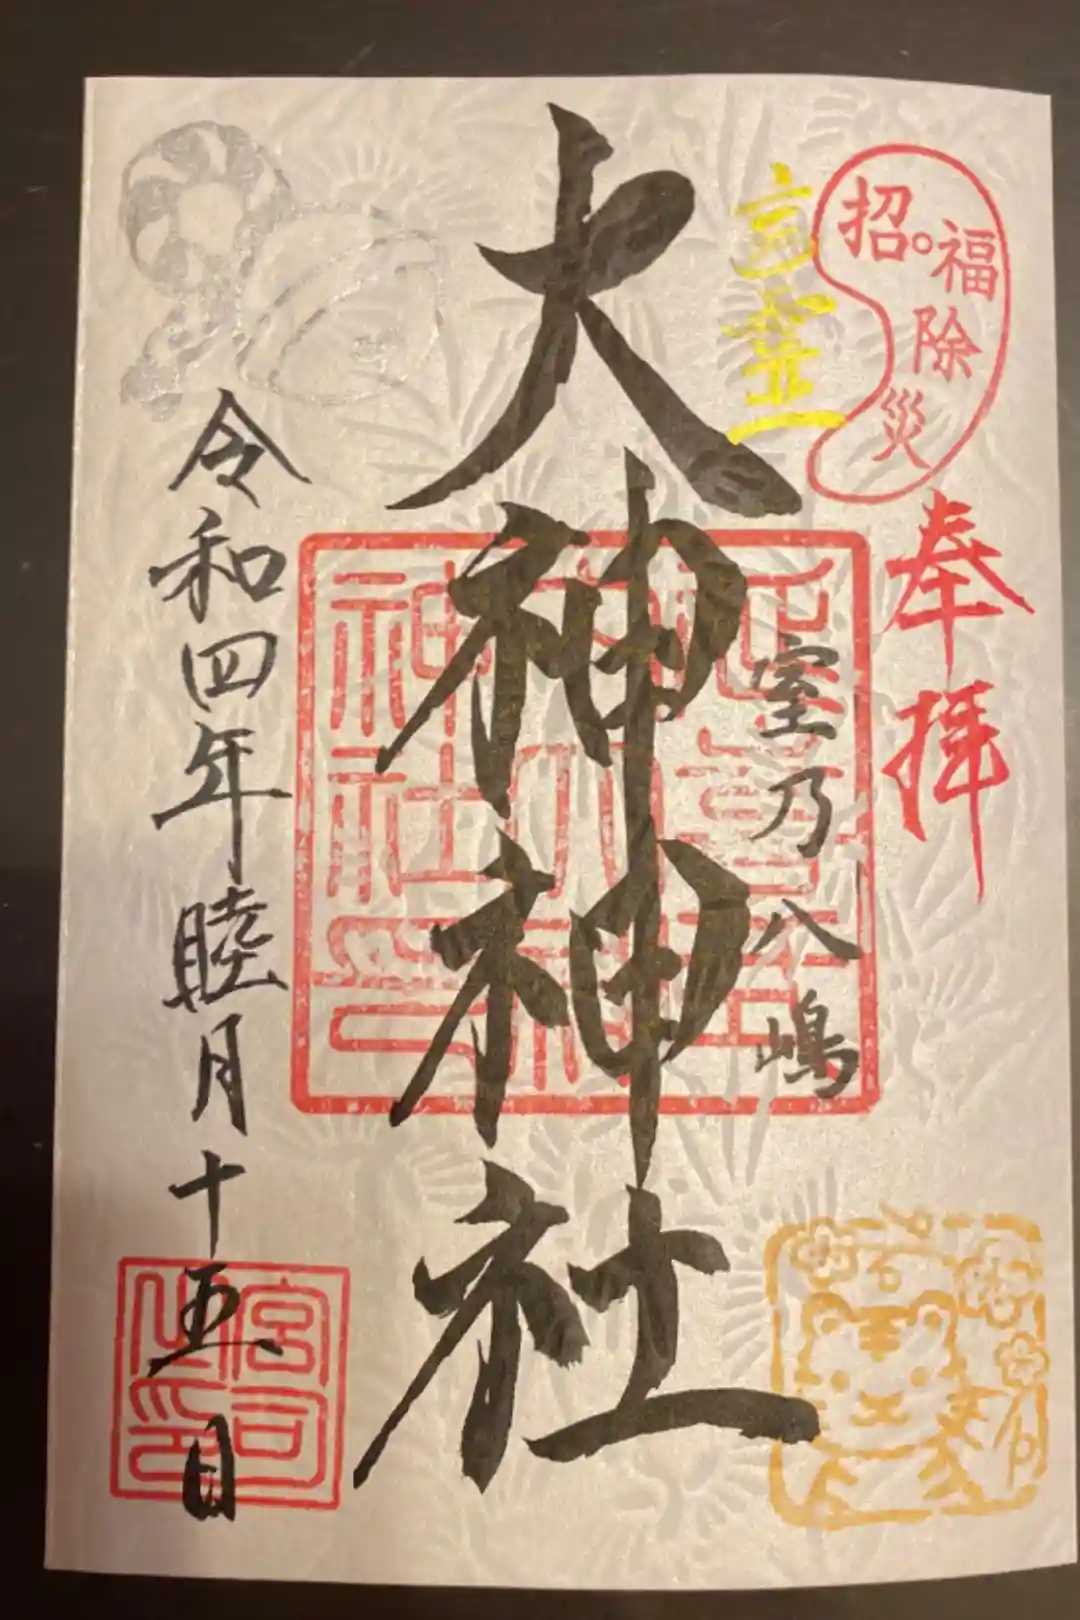 招福
除災
奉拝
室乃八嶋
大神神社
令和四年睦月十五日
宮司之印